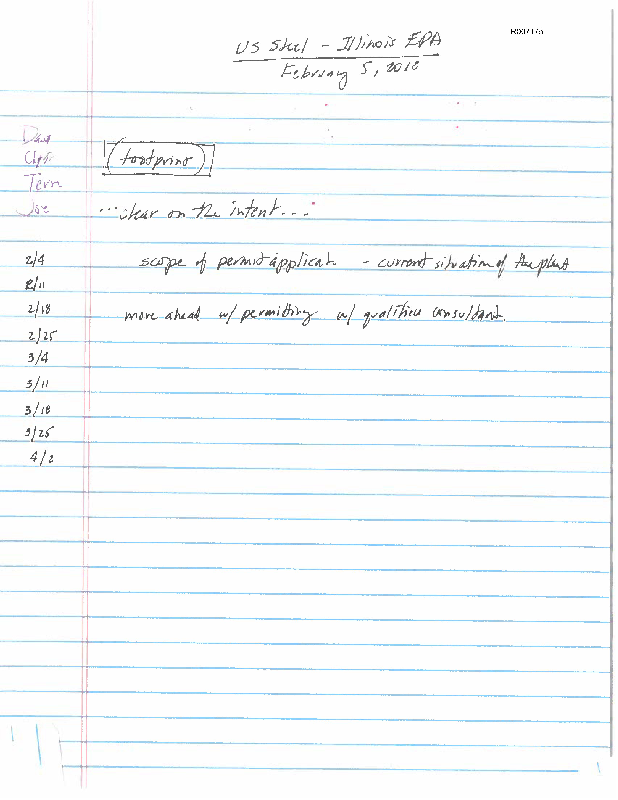 US Steel - Illinois EPA
February 5, 2018
Dave
Chris
Terri
Joe
footprint
... clear on the intent...
scope of permit applicat. - current situation of the plant
move ahead w/ permitting w/ qualified consultant.
2/4
2/11
2/18
2/25
3/4
3/11
3/18
3/25
4/2